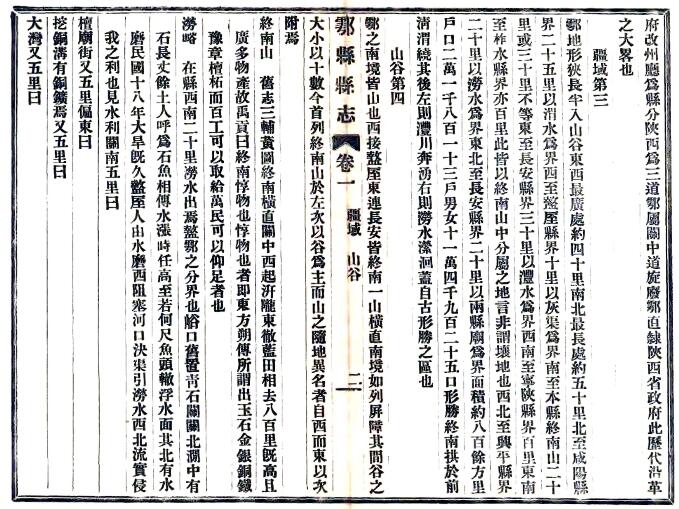 府改州廳爲縣分陝西爲三道鄠屬關中道旋廢鄠直隸陝西省政府此歷代沿革
之大畧也
疆域第三
鄠地形狹長半入山谷東西最廣處約四十里南北最長處約五十里北至咸陽縣
界二十五里以渭水爲界西至盩厔縣界十里以灰渠爲界南至本縣終南山二十
里或三十里不等東至長安縣界三十里以灃水爲界西南至寧陝縣界百里東南
至柞水縣界亦百里此皆以終南山中分屬之地言非謂壤地也西北至興平縣界
二十里以澇水爲界東北至長安縣界二十里以兩縣廟爲界面積約八百餘方里
戶口二萬一千八百一十三戶男女十一萬四千九百二十五口形勝終南拱於前
清渭繞其後左則灃川奔湧右則澇水瀠洄蓋自古形勝之區也
山谷第四
鄠之南境皆山也西接盩厔東連長安皆終南一山橫亘南境如列屏障其間谷之
鄠縣縣志 卷一 疆域 山谷 二
大小以十數今首列終南山於左次以谷爲主而山之隨地異名者自西而東以次
附焉
終南山 舊志三輔黃圖終南橫亘關中西起汧隴東徹藍田相去八百里旣高且
廣多物產故禹貢曰終南惇物也惇物也者即東方朔傳所謂出玉石金銀銅鐵
豫章檀柘而百工可以取給萬民可以仰足者也
澇峪 在縣西南二十里澇水出焉盩鄠之分界也峪口舊置青石關關北澗中有
石長丈餘土人呼爲石魚相傳水漲時任高至若何尺魚頭轍浮水面其北有水
磨民國十八年大旱旣久盩厔人由水磨西阻塞河口決渠引澇水西北流實侵
我之利也見水利關南五里曰
檀廟街又五里偏東曰
挖銅溝有銅鑛焉又五里曰
大灣又五里曰